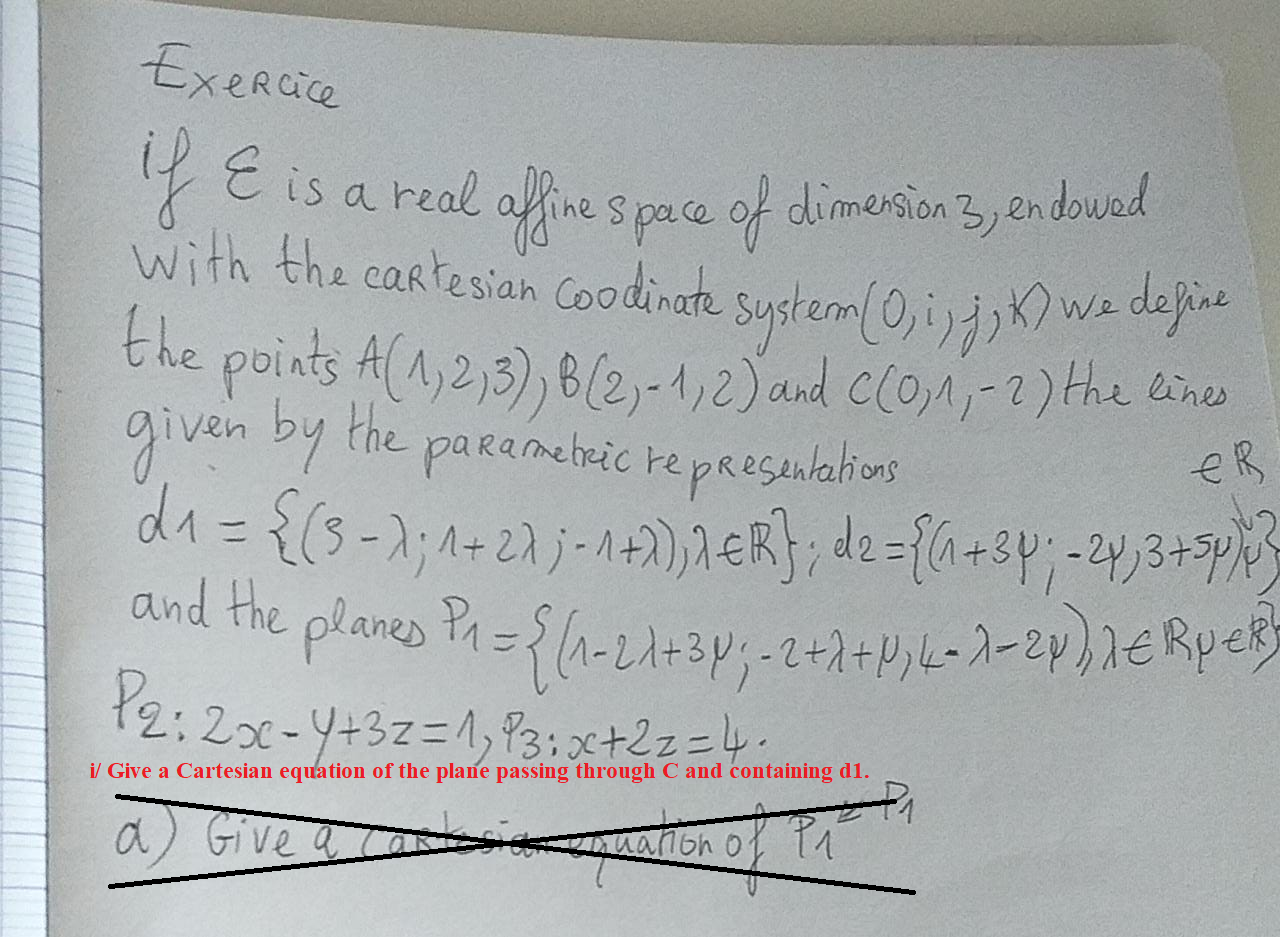 Exercice
if ℰ is a real affine space of dimension 3, endowed
With the cartesian coodinate system (0,i,j,K) we define
the points A(1,2,3), B(2,-1,2) and C(0,1,-2) the lines
given by the parametric representations ∈ ℝ
d1 = {(3-λ; 1+2λ; -1+λ), λ∈ℝ}; d2={(1+3μ; -2μ, 3+5μ) μ}
and the planes P1 = {(1-2λ+3μ; -2+λ+μ, 4-λ-2μ), λ∈ℝ μ∈ℝ}
P2: 2x-y+3z=1, P3: x+2z=4.
i/ Give a Cartesian equation of the plane passing through C and containing d1.
a) Give a Cartesian equation of P1 = P1